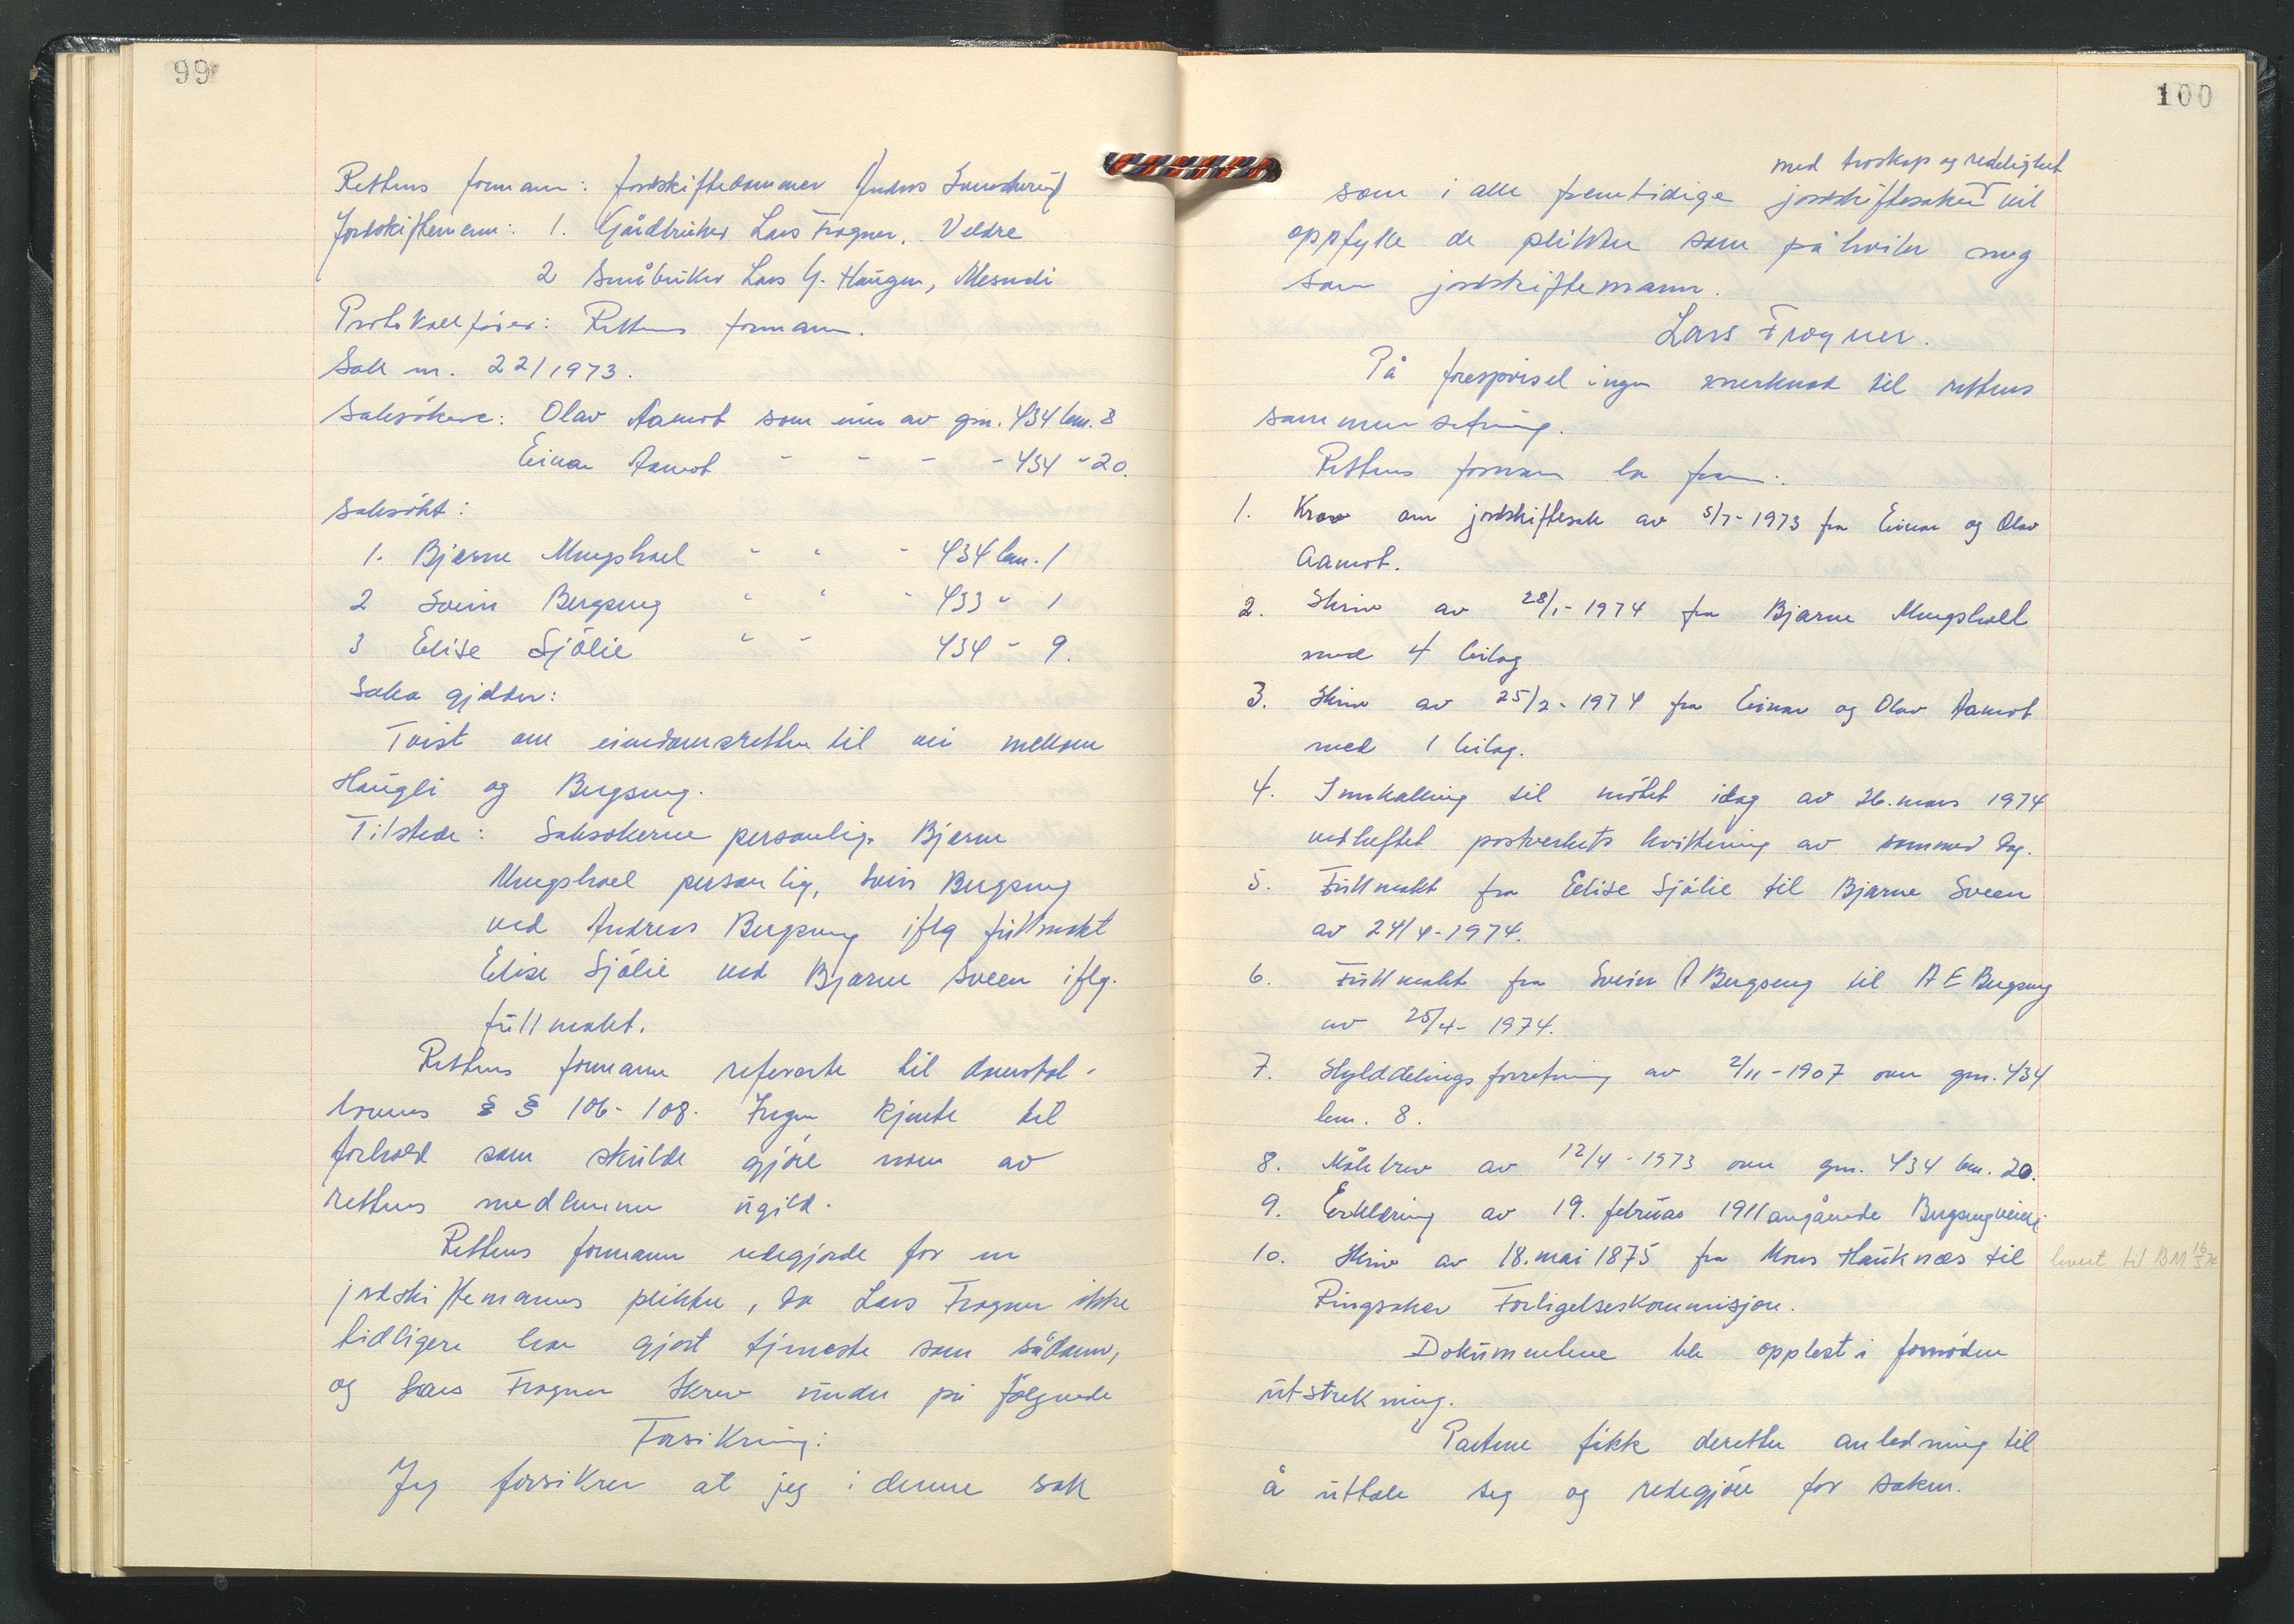 99
Rettens formann: Jordskiftedommer Anders
Jordskiftemenn: 1. Gårdbruker Lars Frogner, Veldre
2 Småbruker Lars G. Haugen, Mesnali
Protokollfører: Rettens formann.
Sak nr. 22/1973.
Saksøkere: Olav Aamot som eier av gnr. 434 bnr. 8
Einar Aamot " - - - 434 " 20.
Saksøkt:
1. Bjarne Mungshoel " " " 434 bnr. 1
2 Svein Bergseng " " " 433 " 1
3 Elise Sjølie " " 434 - 9.
Saka gjelder:
Tvist om eiendomsretten til vei mellom
Haugli og Bergseng.
Tilstede: Saksøkerne personlig. Bjarne
Mungshoel personlig, Svein Bergseng
ved Andreas Bergseng iflg fullmakt
Elise Sjølie ved Bjarne Sveen iflg.
fullmakt.
Rettens formann refererte til domstol-
lovens § § 106-108. Ingen kjente til
forhold som skulde gjøre noen av
rettens medlemmer ugild.
Rettens formann redegjorde for en
jordskiftemanns plikter, da Lars Frogner ikke
tidligere har gjort tjeneste som sådann,
og Lars Frogner skrev under på følgende
Forsikring:
Jeg forsikrer at jeg i denne sak
100
med troskap og redelighet
som i alle fremtidige jordskiftesaker vil
oppfylle de plikter som påhviler meg
som jordskiftemann.
Lars Frogner.
På forespørsel ingen merknad til rettens
sammensetning.
Rettens formann la fram:
1. Krav om jordskiftesak av 5/7-1973 fra Einar og Olav
Aamot.
2. Skriv av 28/1-1974 fra Bjarne Mungshoel
med 4 bilag
3. Skriv av 25/2-1974 fra Einar og Olav Aamot
med 1 bilag.
4. Innkalling til møtet idag av 26. mars 1974
vedheftet postverkets kvittering av samme dag.
5. Fullmakt fra Elise Sjølie til Bjarne Sveen
av 24/4-1974.
6. Fullmakt fra Svein A Bergseng til A E Bergseng
av 25/4-1974.
7. Skylddelingsforretning av 2/11-1907 over gnr. 434
bnr. 8.
8. Målebrev av 12/4-1973 over gnr. 434 bnr. 20.
9. Erklæring av 19. februar 1911 angående Bergsengveien
10. Skriv av 18. mai 1875 fra Mons Hauknæs til levert til BM 16/5 74
Ringsaker Forligelseskommisjon.
Dokumentene ble opplest i fornøden
utstrekning.
Partene fikk deretter anledning til
å uttale seg og redegjøre for saken.